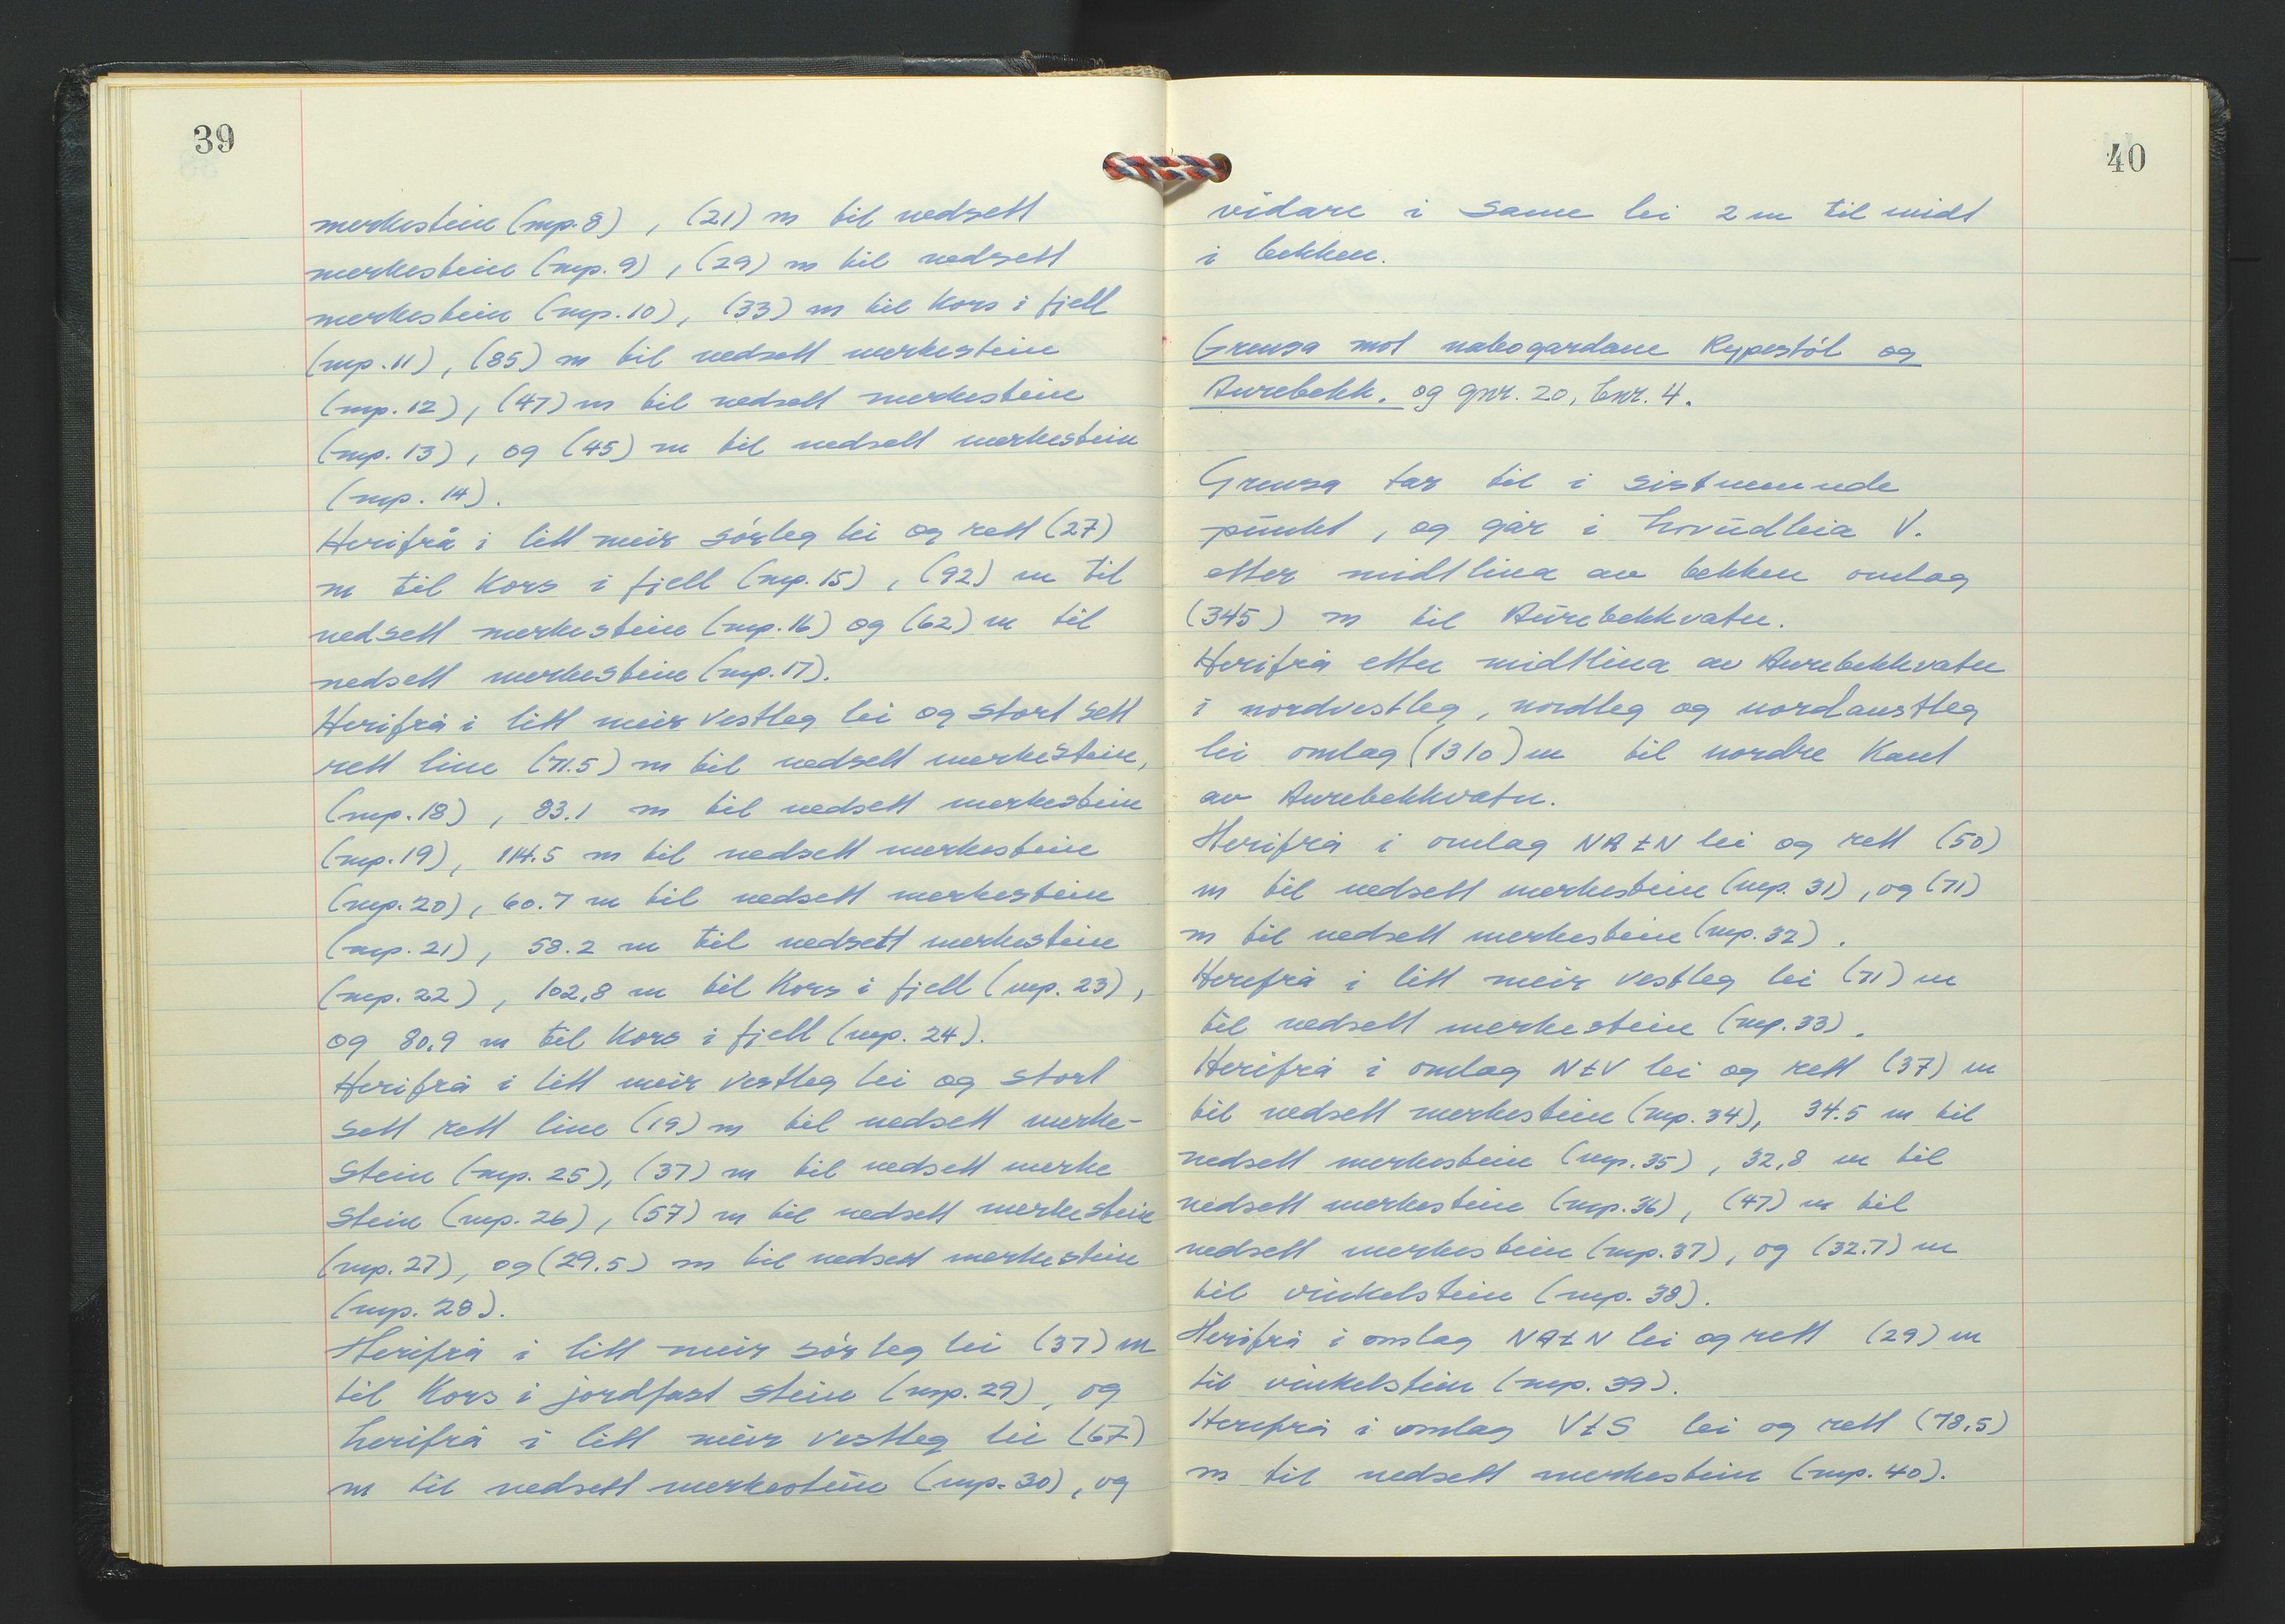 39
merkestein (mp. 8), (21) m til nedsett
merkestein (mp. 9), (29) m til nedsett
merkestein (mp. 10), (33) m til kors i fjell
(mp. 11), (85) m til nedsett merkestein
(mp. 12), (47) m til nedsett merkestein
(mp. 13), og (45) m til nedsett merkestein
(mp. 14).
Herifrå i litt meir sørleg lei og rett (27)
m til kors i fjell (mp. 15), (92) m til
nedsett merkestein (mp. 16) og (62) m til
nedsett merkestein (mp. 17).
Herifrå i litt meir vestleg lei og stort sett
rett line (71.5) m til nedsett merkestein,
(mp. 18), 83.1 m til nedsett merkestein
(mp. 19), 114.5 m til nedsett merkestein
(mp. 20), 60.7 m til nedsett merkestein
(mp. 21), 58.2 m til nedsett merkestein
(mp. 22), 102,8 m til kors i fjell (mp. 23),
og 80,9 m til kors i fjell (mp. 24).
Herifrå i litt meir vestleg lei og stort
sett rett line (19) m til nedsett merke-
stein (mp. 25), (37) m til nedsett merke
stein (mp. 26), (57) m til nedsett merkestein
(mp. 27), og (29.5) m til nedsett merkestein
(mp. 28).
Herifrå i litt meir sørleg lei (37) m
til kors i jordfast stein (mp. 29), og
herifrå i litt meir vestleg lei (67)
m til nedsett merkestein (mp. 30), og
40
vidare i same lei 2 m til midt
i bekken.
Grensa mot nabogardane Rypestöl og
Aurebekk. og gnr. 20, bnr. 4.
Grensa tar til i sistnemnde
punkt, og går i hovudleia V.
etter midtlina av bekken omlag
(345) m til Aurebekkvatn.
Herifrå etter midtlina av Aurebekkvatn
i nordvestleg, nordleg og nordaustleg
lei omlag (1310) m til nordre kant
av Aurebekkvatn.
Herifrå i omlag NAtN lei og rett (50)
m til nedsett merkestein (mp. 31), og (71)
m til nedsett merkestein (mp. 32).
Herifrå i litt meir vestleg lei (71) m
til nedsett merkestein (mp. 33).
Herifrå i omlag NtV lei og rett (37) m
til nedsett merkestein (mp. 34), 34.5 m til
nedsett merkestein (mp. 35), 32,8 m til
nedsett merkestein (mp. 36), (47) m til
nedsett merkestein (mp. 37), og (32.7) m
til vinkelstein (mp. 38).
Herifrå i omlag NAtN lei og rett (29) m
til vinkelstein (mp. 39).
Herifrå i omlag VtS lei og rett (78,5)
m til nedsett merkestein (mp. 40).